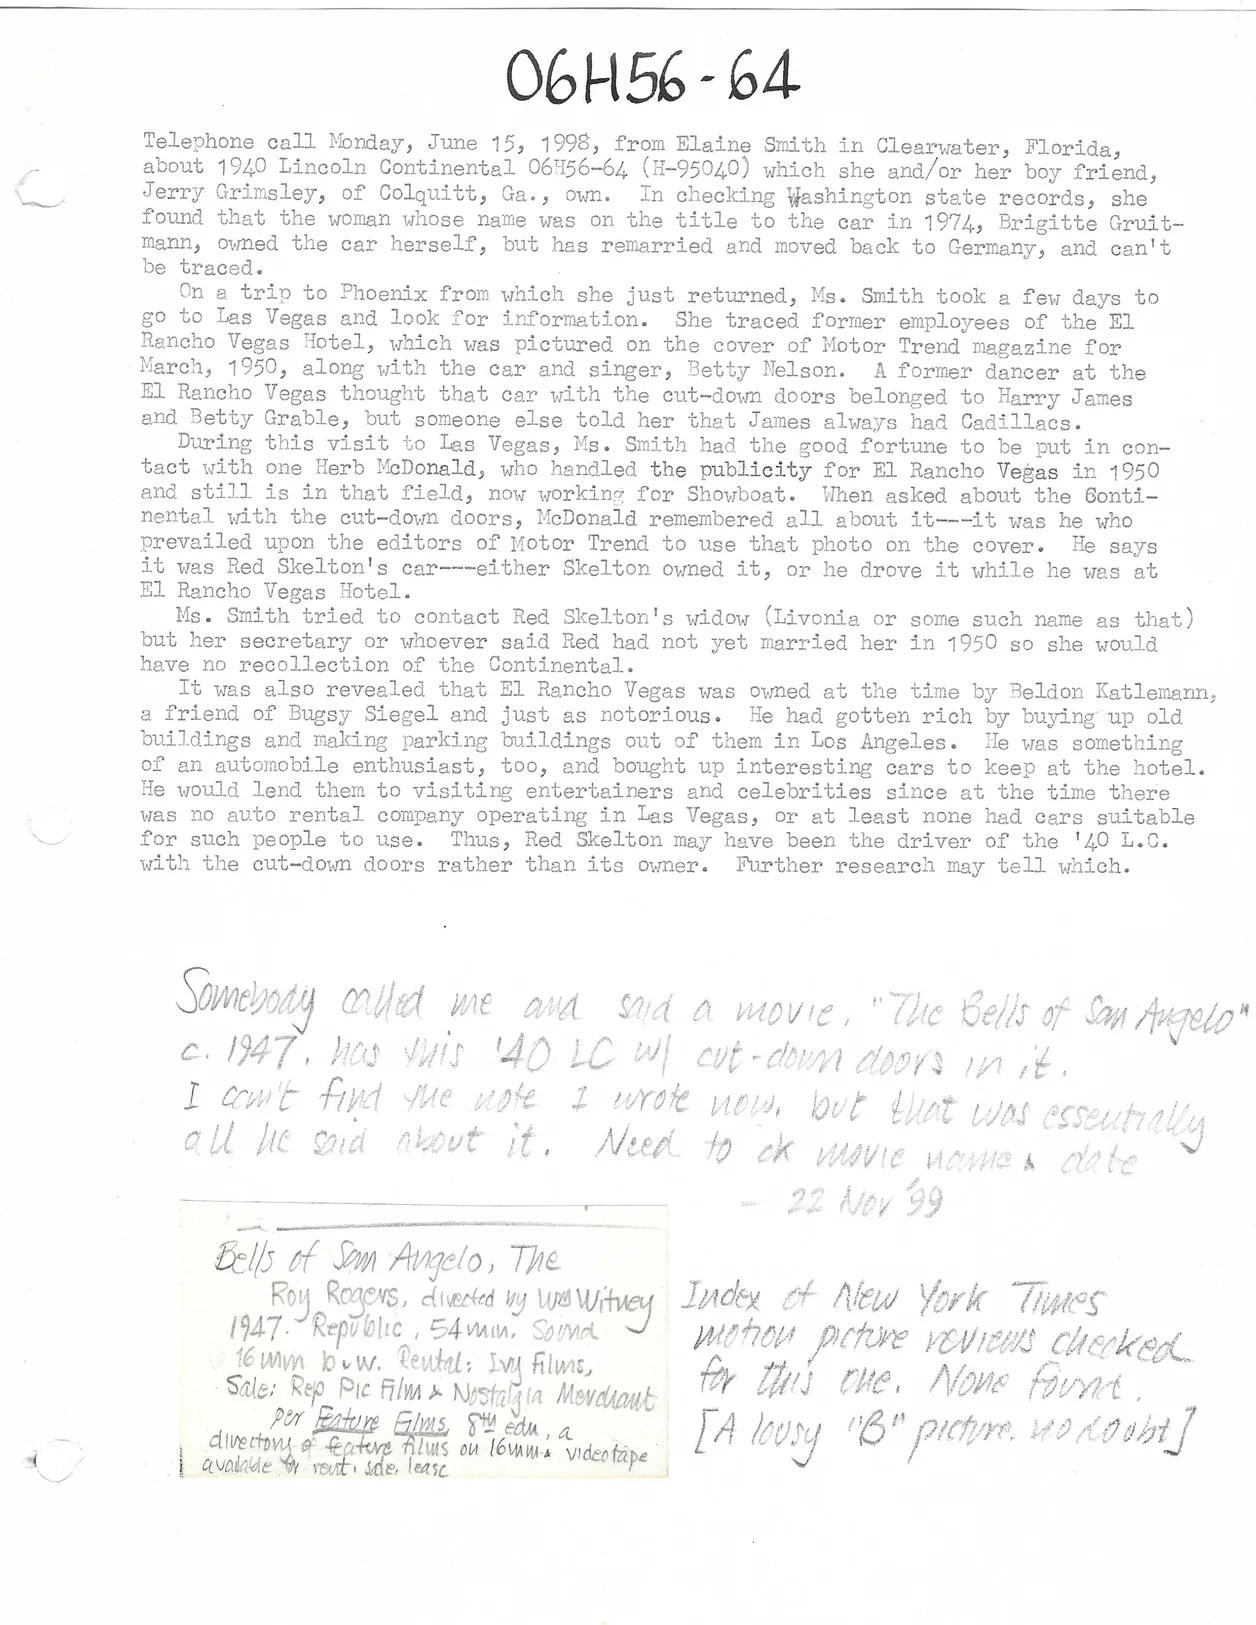 06H56-64
Telephone call Monday, June 15, 1998, from Elaine Smith in Clearwater, Florida,
about 1940 Lincoln Continental 06H56-64 (H-95040) which she and/or her boy friend,
Jerry Grimsley, of Colquitt, Ga., own.  In checking Washington state records, she
found that the woman whose name was on the title to the car in 1974, Brigitte Gruit-
mann, owned the car herself, but has remarried and moved back to Germany, and can't
be traced.
On a trip to Phoenix from which she just returned, Ms. Smith took a few days to
go to Las Vegas and look for information.  She traced former employees of the El
Rancho Vegas Hotel, which was pictured on the cover of Motor Trend magazine for
March, 1950, along with the car and singer, Betty Nelson.  A former dancer at the
El Rancho Vegas thought that car with the cut-down doors belonged to Harry James
and Betty Grable, but someone else told her that James always had Cadillacs.
During this visit to Las Vegas, Ms. Smith had the good fortune to be put in con-
tact with one Herb McDonald, who handled the publicity for El Rancho Vegas in 1950
and still is in that field, now working for Showboat.  When asked about the Conti-
nental with the cut-down doors, McDonald remembered all about it---it was he who
prevailed upon the editors of Motor Trend to use that photo on the cover.  He says
it was Red Skelton's car---either Skelton owned it, or he drove it while he was at
El Rancho Vegas Hotel.
Ms. Smith tried to contact Red Skelton's widow (Livonia or some such name as that)
but her secretary or whoever said Red had not yet married her in 1950 so she would
have no recollection of the Continental.
It was also revealed that El Rancho Vegas was owned at the time by Beldon Katlemann,
a friend of Bugsy Siegel and just as notorious.  He had gotten rich by buying up old
buildings and making parking buildings out of them in Los Angeles.  He was something
of an automobile enthusiast, too, and bought up interesting cars to keep at the hotel.
He would lend them to visiting entertainers and celebrities since at the time there
was no auto rental company operating in Las Vegas, or at least none had cars suitable
for such people to use.  Thus, Red Skelton may have been the driver of the '40 L.C.
with the cut-down doors rather than its owner.  Further research may tell which.
Somebody called me and said a movie, "The Bells of San Angelo"
c. 1947, has this '40 LC w/ cut-down doors in it.
I can't find the note I wrote now, but that was essentially
all he said about it. Need to ck movie name & date
- 22 Nov '99
Bells of San Angelo, The
Roy Rogers, directed by Wm Witney
1947. Republic, 54 min. Sound
16mm b&w. Rental: Ivy Films,
Sale: Rep Pic Film & Nostalgia Merchant
per Feature Films, 8th edn, a
directory of feature films on 16mm & videotape
available for rent, sale, lease
Index of New York Times
motion picture reviews checked
for this one. None found.
[A lousy "B" picture, no doubt]